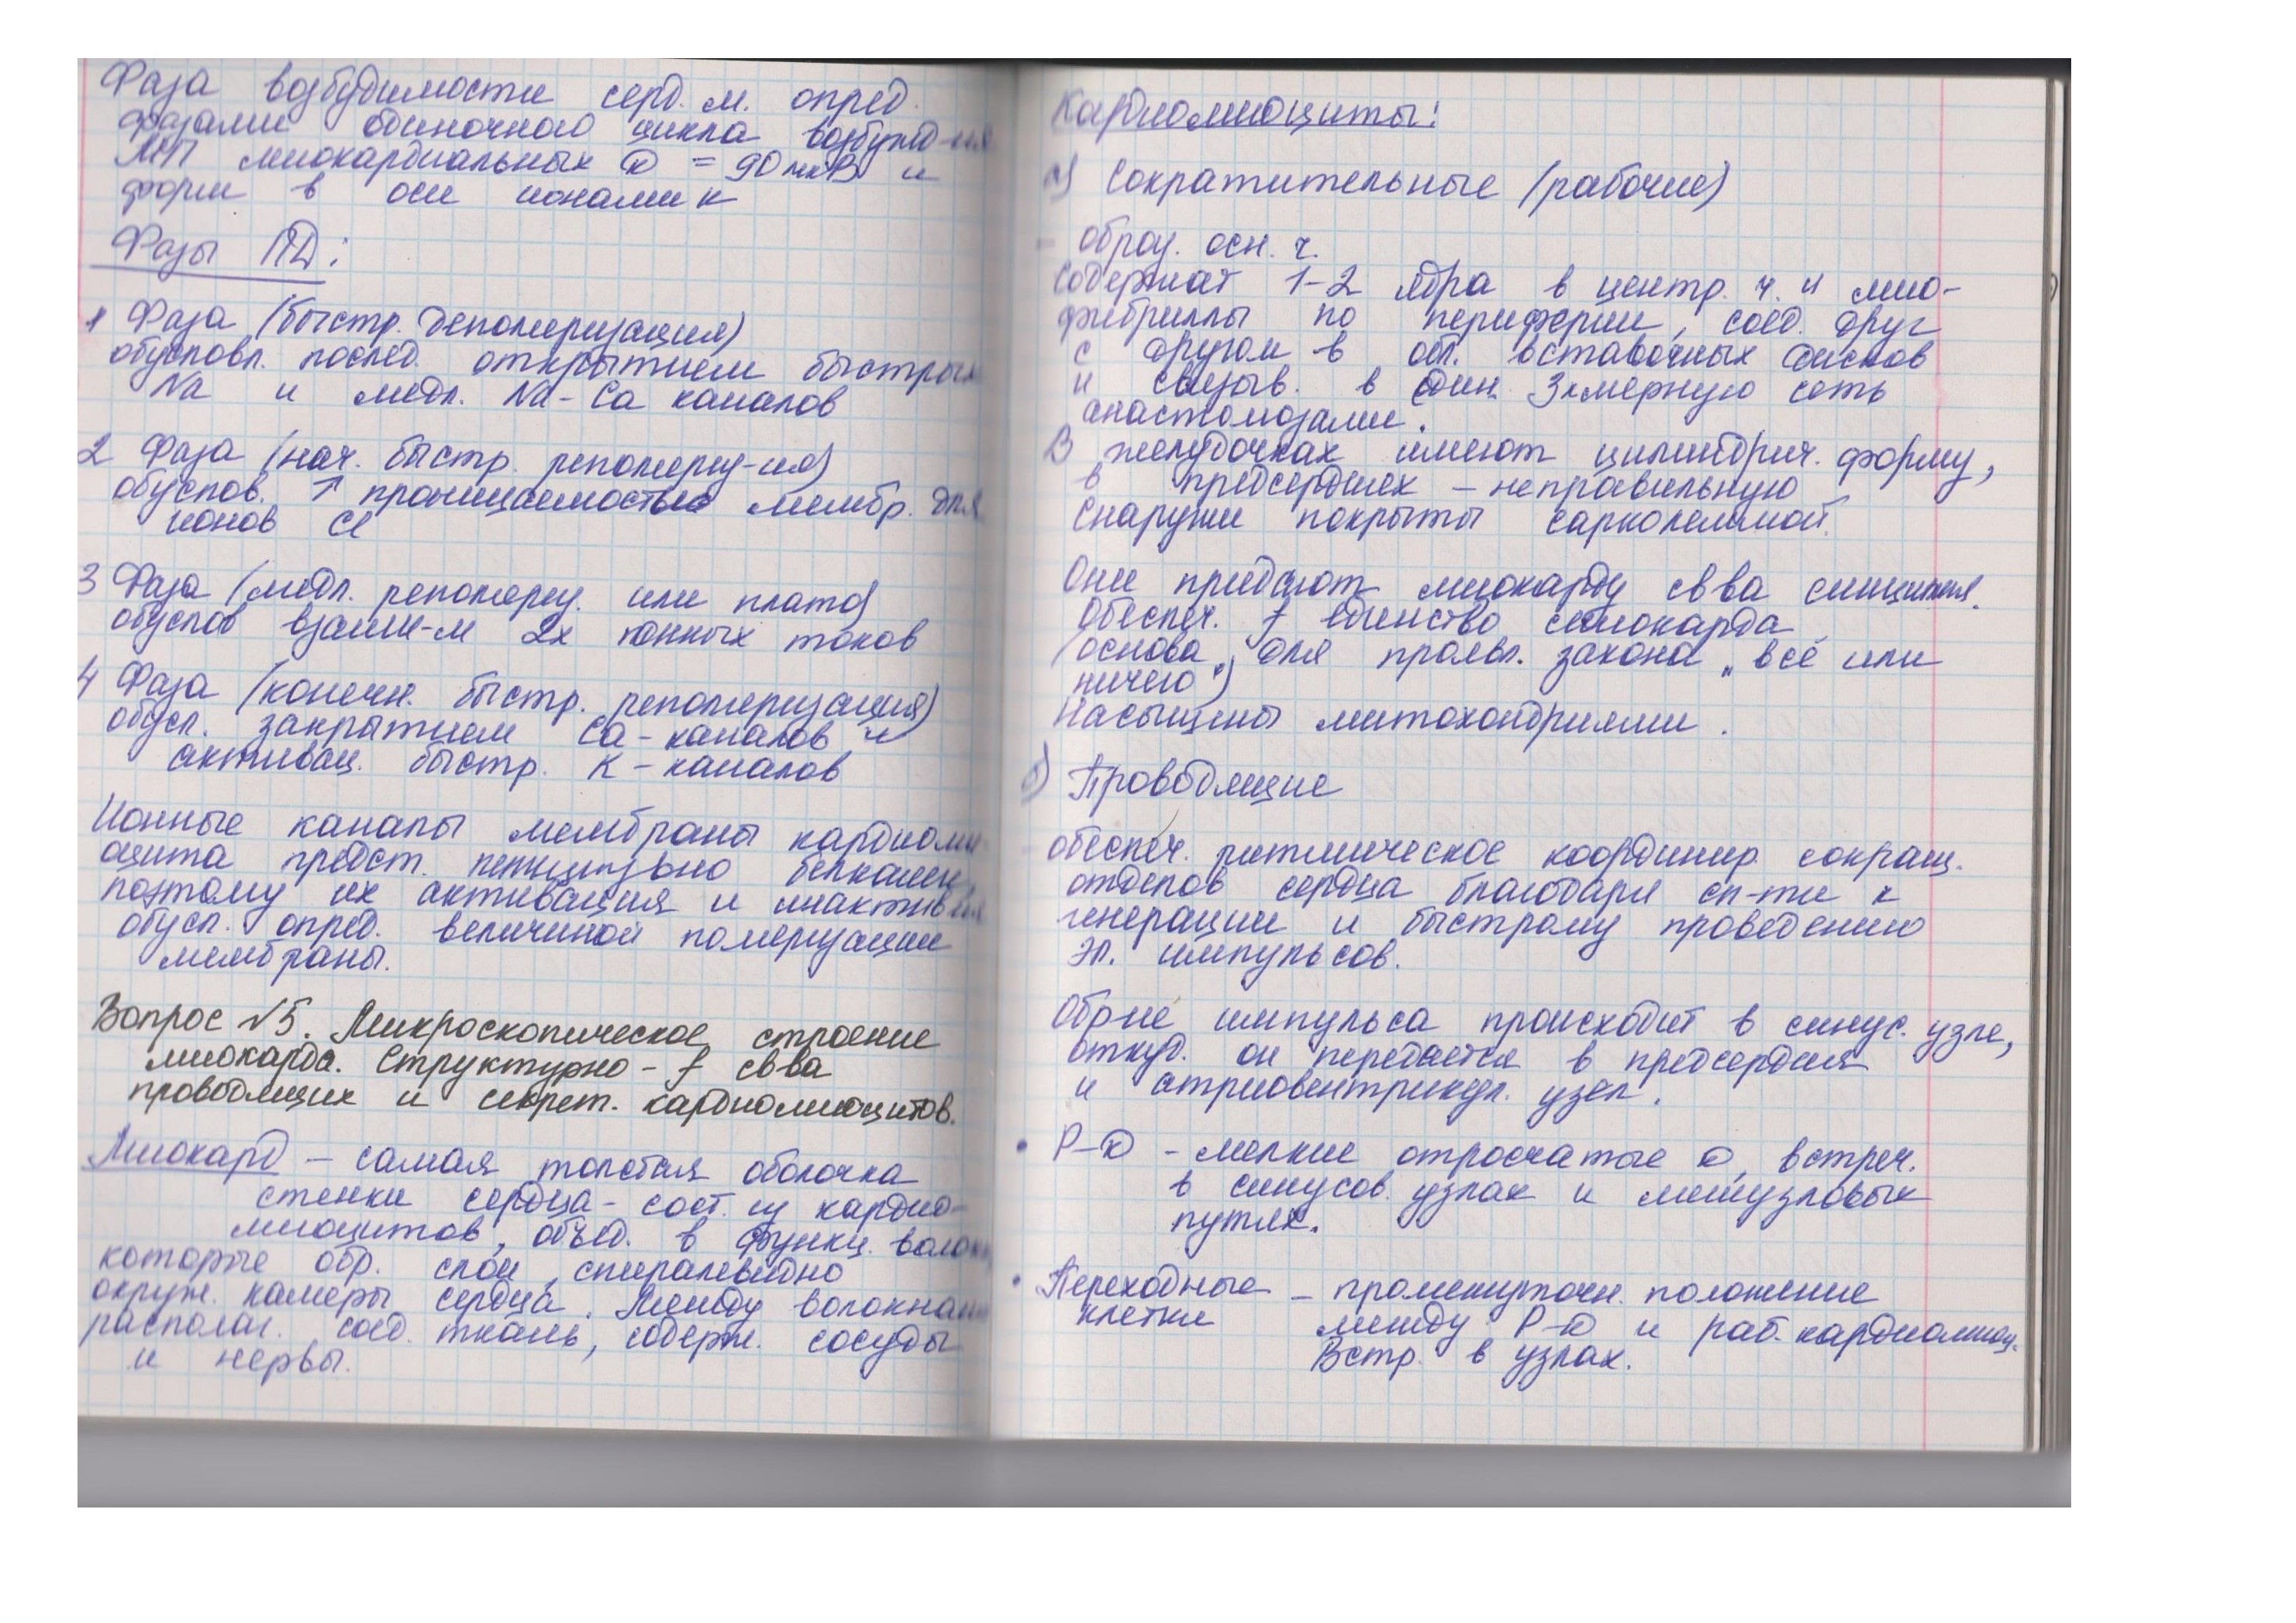 Фаза возбудимости серд. м. опред.
фазами одиночного цикла возбужд-ия.
МП миокардиальных = 90 мкВ и
форм в осн ионами К
Фазы ПД:
1 Фаза (быстр. деполяризация)
обусловл. послед. открытием быстрых
Na и медл. Na-Ca каналов
2 Фаза (нач. быстр. реполяриз-ия)
обуслов. ↑ проницаемостью мембр. для
ионов Cl
3 Фаза (медл. реполяриз. или плато)
обуслов взаим-м 2х ионных токов
4 Фаза (конечн. быстр. реполяризация)
обусл. закрытием Ca-каналов и
активац. быстр. К-каналов
Ионные каналы мембраны кардиоми
оцита предст. белками,
поэтому их активация и инактив-ия
обусл. опред. величиной поляризации
мембраны.
Вопрос №5. Микроскопическое строение
миокарда. Структурно-f св ва
проводящих и секрет. кардиомиоцитов.
Миокард - самая толстая оболочка
стенки сердца - сост. из кардио-
миоцитов, объед. в функц. волокн
которые обр. слои, спиралевидно
окруж. камеры сердца. Между волокнами
располаг. соед. ткань, содерж. сосуды
и нервы.
Кардиомиоциты:
а) Сократительные (рабочие)
- образ. осн. ч.
Содержат 1-2 ядра в центр. ч. и мио-
фибриллы по периферии, соед. друг
с другом в обл. вставочных дисков
и связыв. в един. 3хмерную сеть
анастомозами.
В желудочках имеют цилиндрич. форму,
в предсердиях - неправильную
Снаружи покрыты сарколеммой.
Они придают миокарду св ва синцития.
Обеспеч. f единство миокарда
(основа для проявл. закона „всё или
ничего")
Насыщены митохондриями.
б) Проводящие
- обеспеч. ритмическое координир. сокращ.
отделов сердца благодаря сп-ти к
генерации и быстрому проведению
эл. импульсов.
Обр ие импульса происходит в синус. узле,
откуд. он передается в предсердия
и атриовентрикул. узел.
• Р- - мелкие отросчатые , встреч.
в синусов. узлах и межузловых
путях.
• Переходные - промежуточн. положение
клетки между Р- и раб. кардиомиоц.
Встр. в узлах.